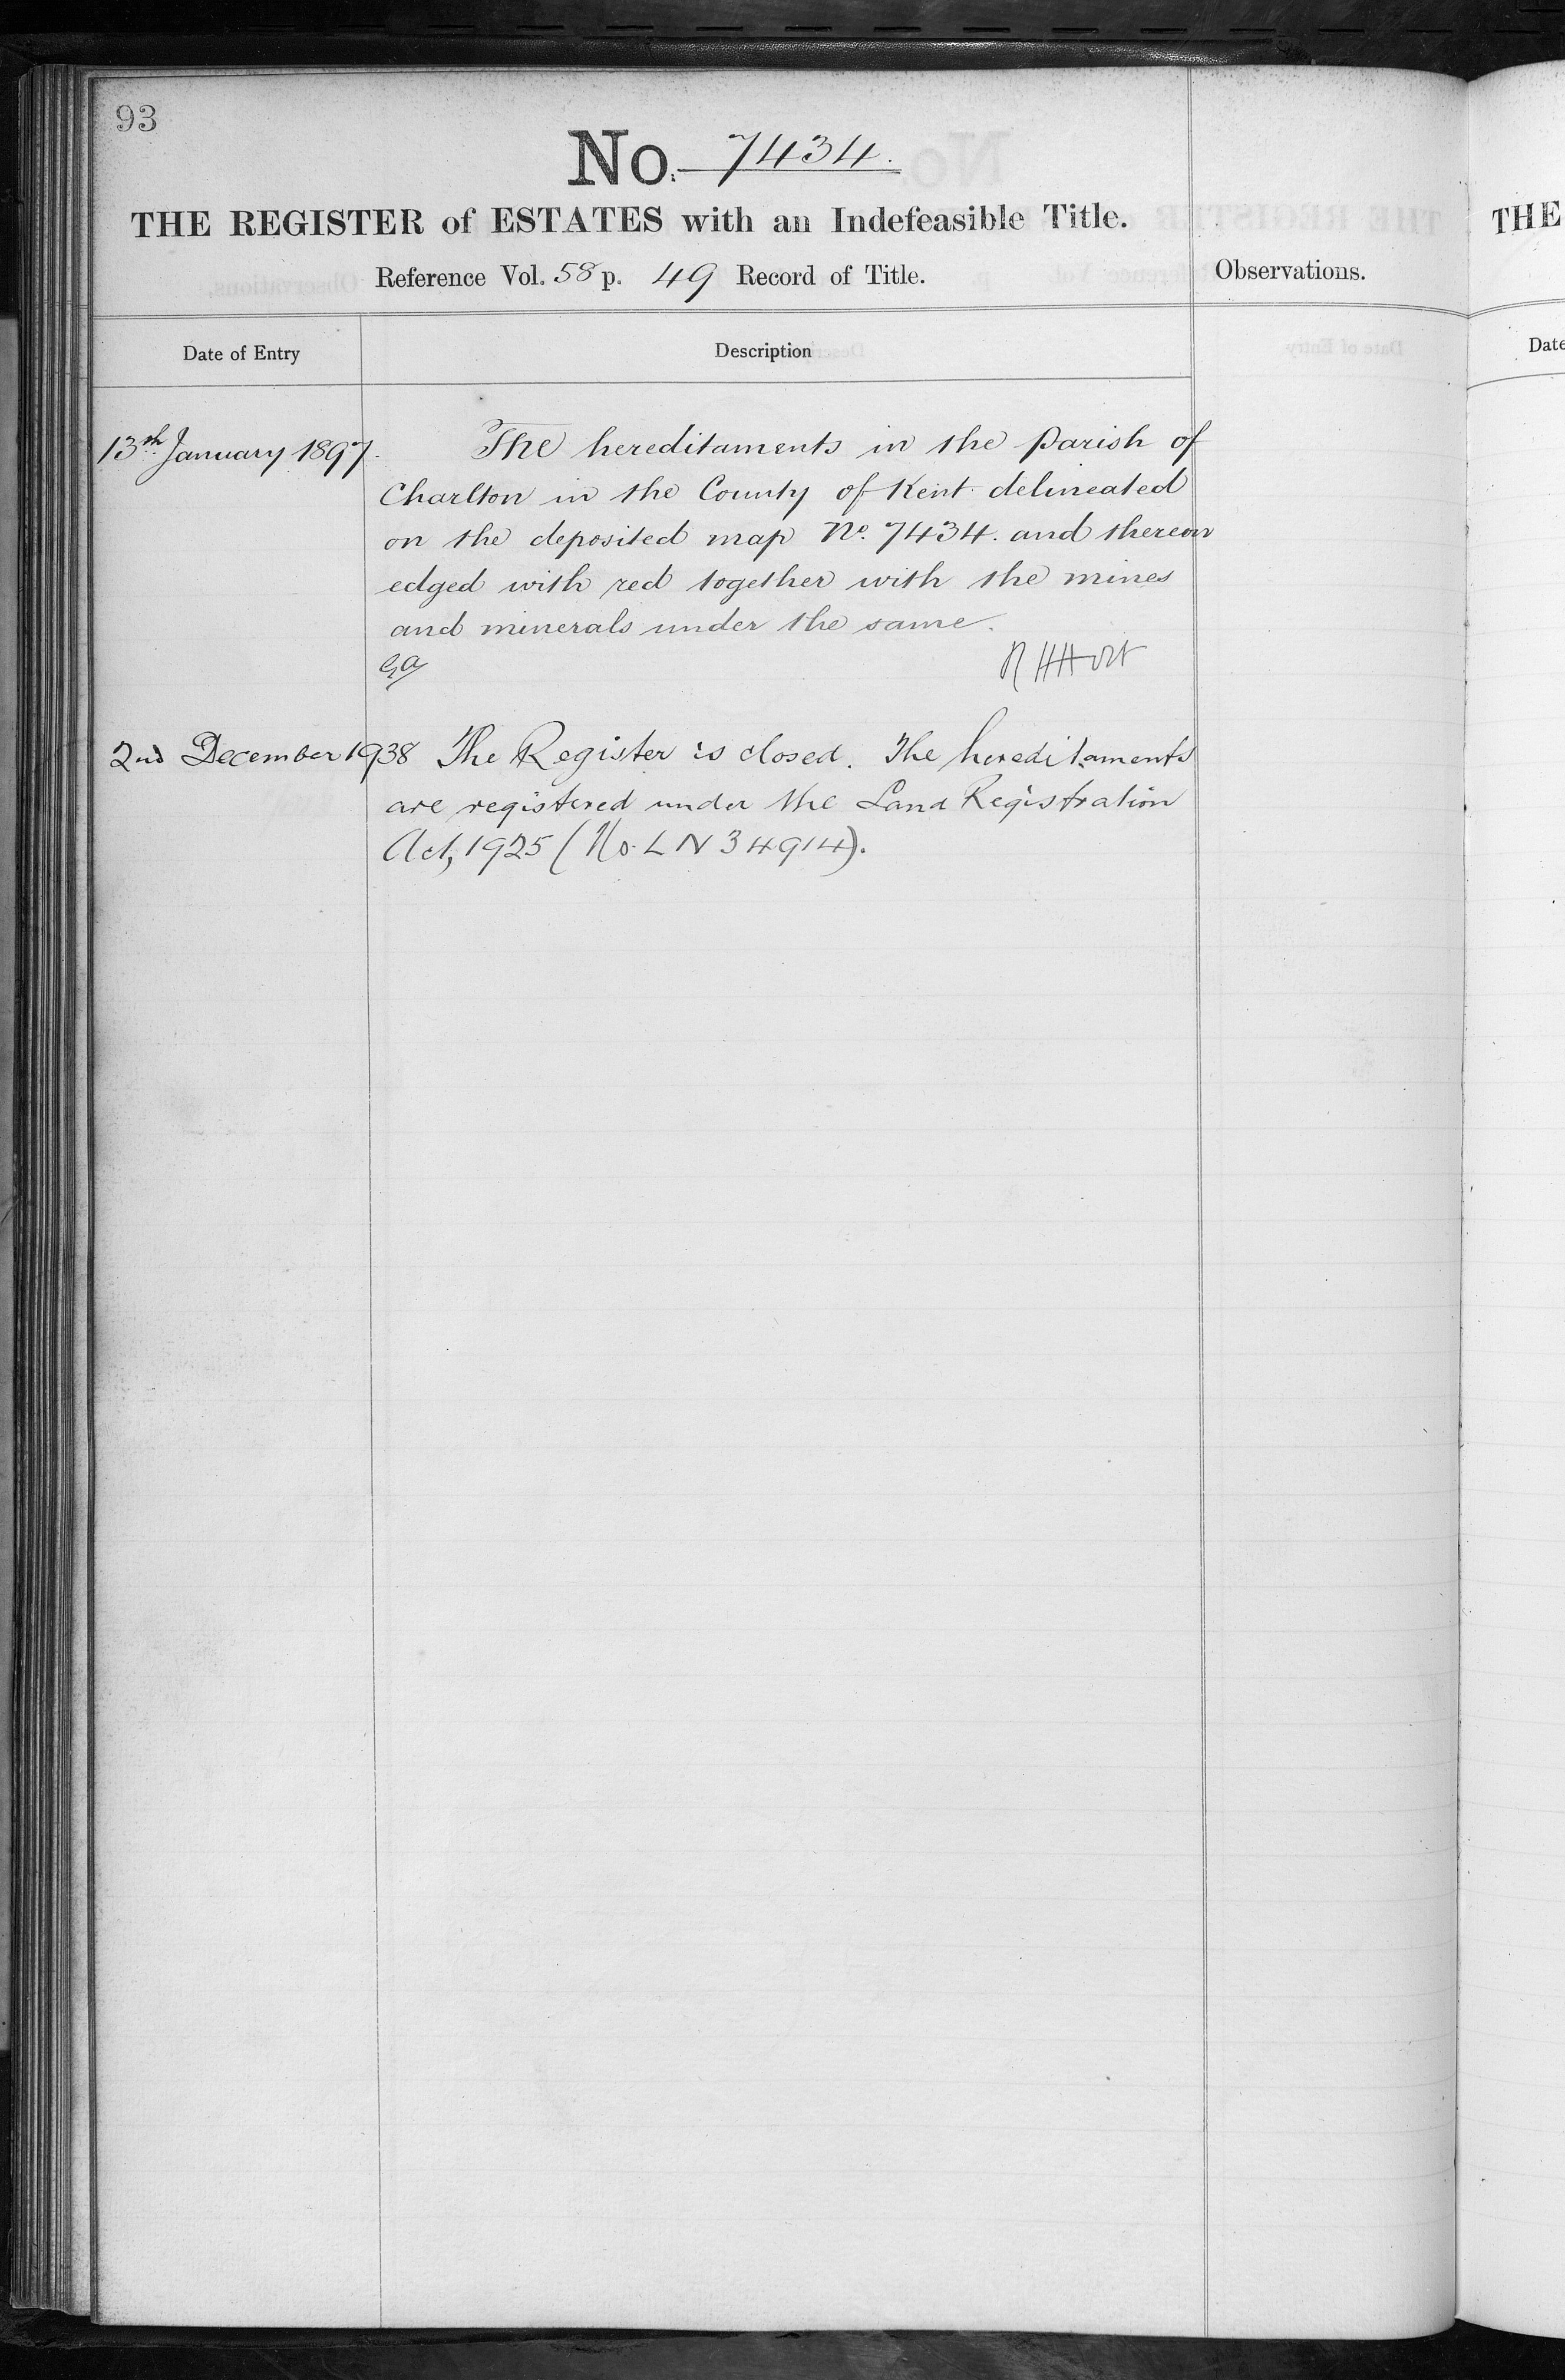 93
No. 7434.
THE REGISTER of ESTATES with an Indefeasible Title.
Reference Vol. 58 p. 49 Record of Title.
Observations.
Date of Entry
Description
13th January 1897.
The hereditaments in the Parish of
Charlton in the County of Kent delineated
on the deposited map No. 7434. and thereon
edged with red together with the mines
and minerals under the same.
2nd December 1938 The Register is closed. The hereditaments
are registered under the Land Registration
Act, 1925 (No. LN 34914).
THE
Date